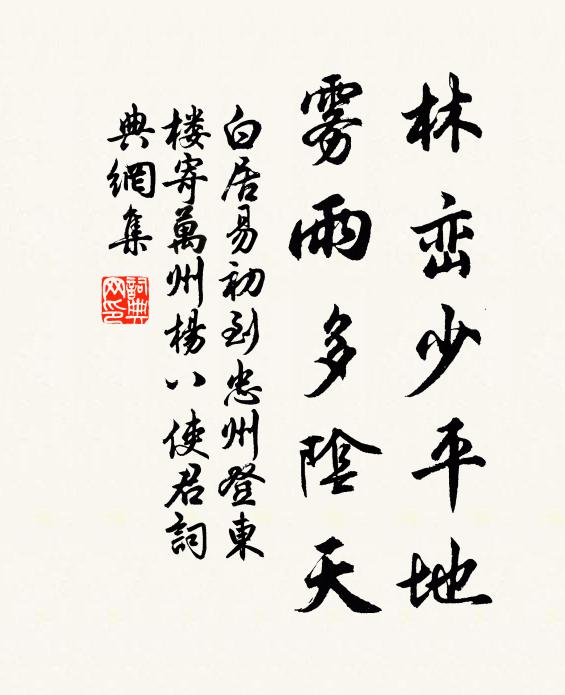 林峦少平地
雾雨多陰天
白居易初到忠州登東
楼寄萬州楊八使君詞
典網集
詞典
网印